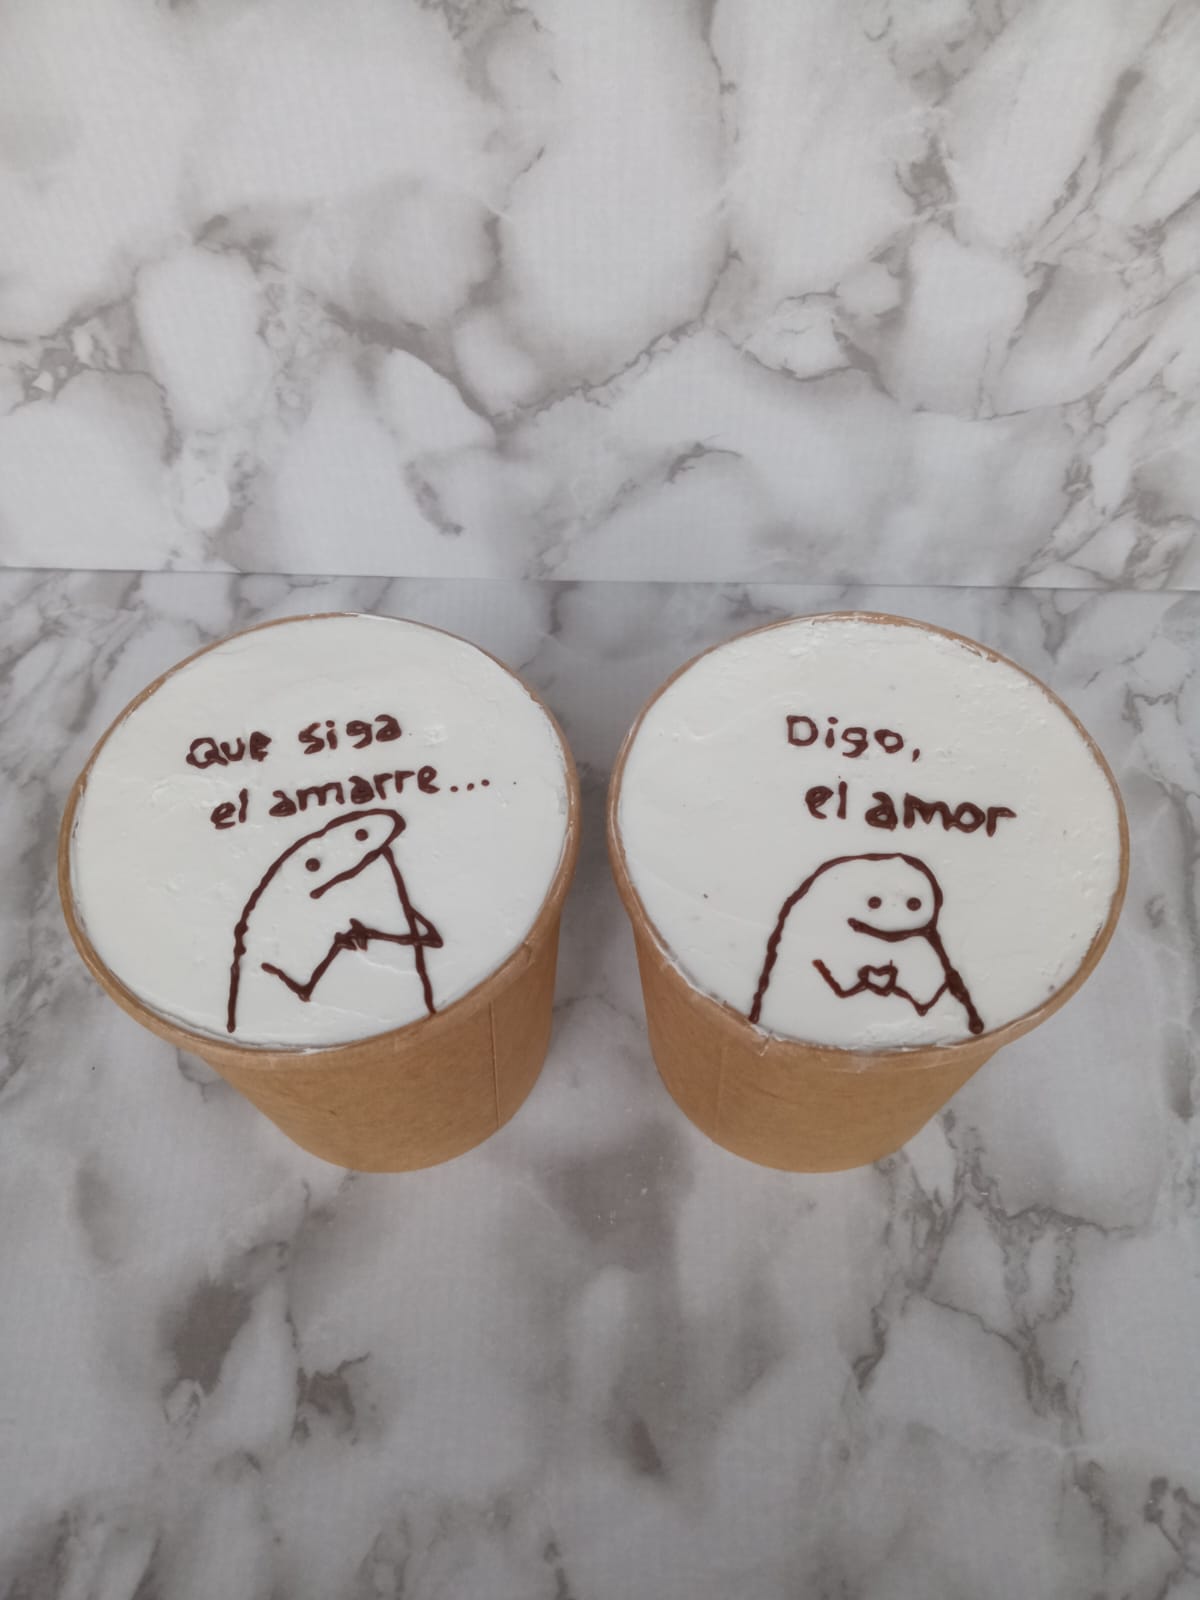 Que siga
el amarre...
Digo,
el amor